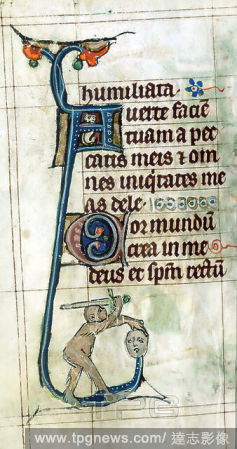 humiliata.
Auerte faciē
tuam a pec
catis meis ⁊ om
nes iniq̇tates me
as dele.
Cor mundū
crea in me
deus et sp̄m rectū
www.tpgnews.com / 達志影像